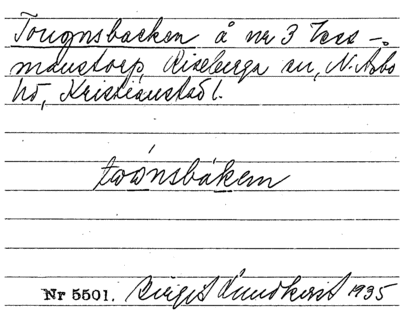 Tougnsbacken å nr 3 Xess-
manstorp, Riseberga sn, N. Åsbo
hd, Kristianstad l.
toónsbákem
Nr 5501. Birgit Lundkvist 1935